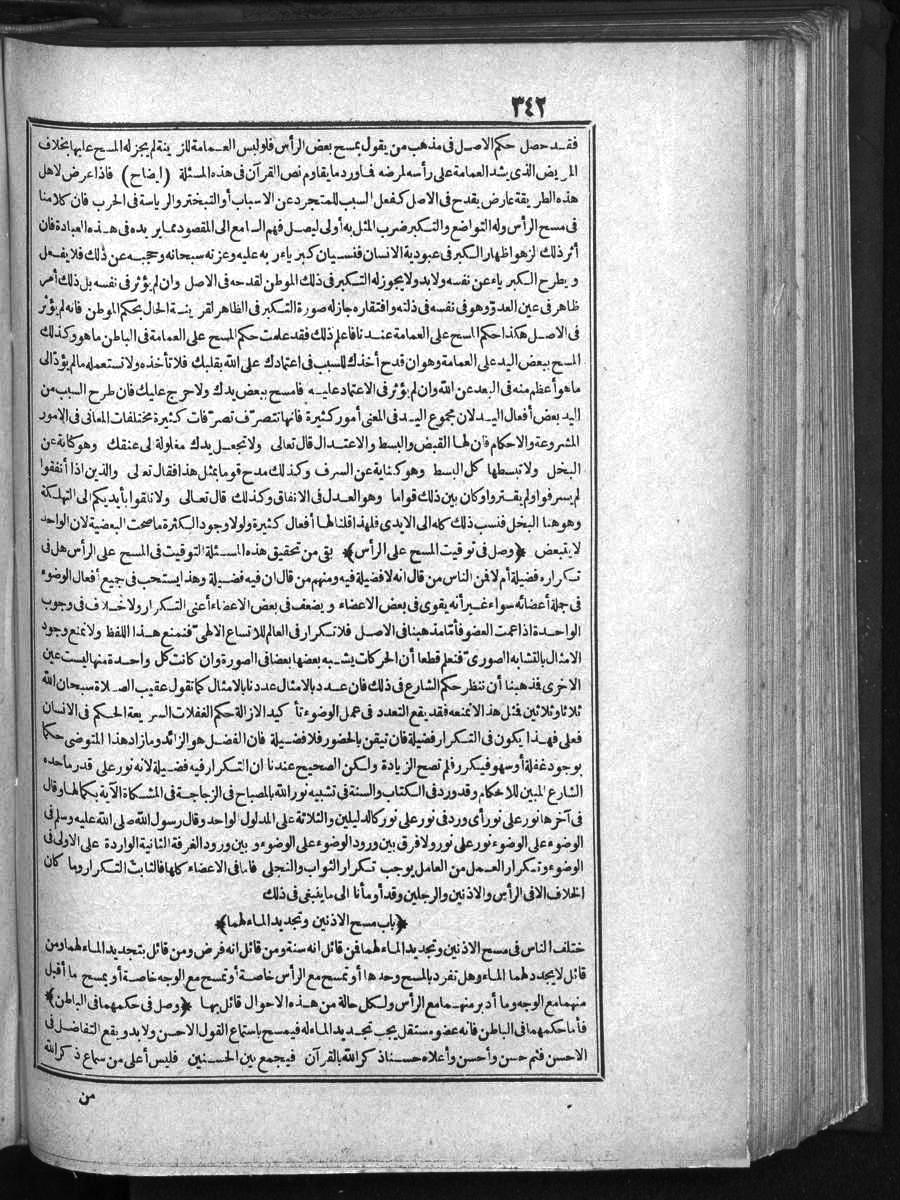 ٣٤٢
فقد حصل حكم الاصل فى مذهب من يقول بمسح بعض الرأس فلو لبس العمامة للزينة لم يجز له المسح عليها بخلاف
المريض الذى يشد العمامة على رأسه لمرضه فما ورد ما يقاوم نص القرآن فى هذه المسئلة (ايضاح) فاذا عرض لاهل
هذه الطريقة عارض يقدح فى الاصل كفعل السبب للمتجرد عن الاسباب أو التبختر والرياسة فى الحرب فان كلامنا
فى مسح الرأس وله التواضع والتكبر ضرب المثل به أولى ليصل فهم السامع الى المقصود مما يريده فى هذه العبادة فان
أثر ذلك الزهو اظهار الكبر فى عبودية الانسان فنسيان كبرياء ربه عليه وعزته سبحانه وحجبه عن ذلك فلا يفعل
ويطرح الكبرياء عن نفسه ولا بد ولا يجوز له التكبر فى ذلك الموطن لقدحه فى الاصل وان لم يؤثر فى نفسه بل ذلك أمر
ظاهر فى عين العدو وهو فى نفسه فى ذلته وافتقاره جاز له صورة التكبر فى الظاهر لقرينة الحال بحكم الموطن فانه لم يؤثر
فى الاصل هكذا حكم المسح على العمامة عندنا فاعلم ذلك فقد علمت حكم المسح على العمامة فى الباطن ما هو وكذلك
المسح ببعض اليد على العمامة وهو ان قدح أخذك للسبب فى اعتمادك على الله بقلبك فلا تأخذه ولا تستعمله ما لم يؤدّ الى
ما هو أعظم منه فى البعد عن الله وان لم يؤثر فى الاعتماد عليه فامسح ببعض يدك ولا حرج عليك فان طرح السبب من
اليد بعض أفعال اليد لان مجموع اليد فى المعنى أمور كثيرة فانها تتصرّف تصرّفات كثيرة مختلفات المعانى فى الامور
المشروعة والاحكام فان لها القبض والبسط والاعتدال قال تعالى ولا تجعل يدك مغلولة الى عنقك وهو كناية عن
البخل ولا تبسطها كل البسط وهو كناية عن السرف وكذلك مدح قوما بمثل هذا فقال تعالى والذين اذا أنفقوا
لم يسرفوا ولم يقتروا وكان بين ذلك قواما وهو العدل فى الانفاق وكذلك قال تعالى ولا تلقوا بأيديكم الى التهلكة
وهو هنا البخل فنسب ذلك كله الى الايدى فلهذا قلنا لها أفعال كثيرة ولولا وجود الكثرة ما صحت البعضية لان الواحد
لا يتبعض ﴿وصل فى توقيت المسح على الرأس﴾ بقى من تحقيق هذه المسئلة التوقيت فى المسح على الرأس هل فى
تكراره فضيلة أم لا فمن الناس من قال انه لا فضيلة فيه ومنهم من قال ان فيه فضيلة وهذا يستحب فى جميع أفعال الوضوء
فى جملة أعضائه سواء غير أنه يقوى فى بعض الاعضاء ويضعف فى بعض الاعضاء أعنى التكرار ولا خلاف فى وجوب
الواحدة اذا عمت العضو فأمّا مذهبنا فى الاصل فلا تكرار فى العالم للاتساع الالهىّ فنمنع هذا اللفظ ولا نمنع وجود
الامثال بالتشابه الصورىّ فنعلم قطعا أن الحركات يشبه بعضها بعضا فى الصورة وان كانت كل واحدة منها ليست عين
الاخرى فذهبنا أن ننظر حكم الشارع فى ذلك فان عدد بالامثال عددنا بالامثال كما نقول عقيب الصلاة سبحان الله
ثلاثا وثلاثين فمثل هذا لا نمنعه فقد يقع التعدد فى عمل الوضوء تأكيد الازالة حكم الغفلات السريعة الحكم فى الانسان
فعلى هذا يكون فى التكرار فضيلة فان تيقن بالحضور فلا فضيلة فان الفضل هو الزائد وما زاد هذا المتوضى حكما
بوجود غفلة أو سهو فيكرر فلم تصح الزيادة ولكن الصحيح عندنا ان التكرار فيه فضيلة لانه نور على قدر ما حده
الشارع المبين للاحكام وقد ورد فى الكتاب والسنة فى تشبيه نور الله بالمصباح فى الزجاجة فى المشكاة الآية بكمالها وقال
فى آخرها نور على نور أى ورد فى نور على نور كالدليلين والثلاثة على المدلول الواحد وقال رسول الله صلى الله عليه وسلم فى
الوضوء على الوضوء نور على نور ولا فرق بين ورود الوضوء على الوضوء وبين ورود الغرفة الثانية الواردة على الاولى فى
الوضوء وتكرار العمل من العامل يوجب تكرار الثواب والتجلى فاما فى الاعضاء كلها فالثابت التكرار وما كان
الخلاف الا فى الرأس والاذنين والرجلين وقد أومأنا الى ما ينبغى فى ذلك
﴿باب مسح الاذنين وتجديد الماء لهما﴾
ختلف الناس فى مسح الاذنين وتجديد الماء لهما فمن قائل انه سنة ومن قائل انه فرض ومن قائل بتجديد الماء لهما ومن
قائل لا يجدد لهما الماء وهل تفرد بالمسح وحدها أو تمسح مع الرأس خاصة أو تمسح مع الوجه خاصة أو يمسح ما أقبل
منهما مع الوجه وما أدبر منهما مع الرأس ولكل حالة من هذه الاحوال قائل بها ﴿وصل فى حكمهما فى الباطن﴾
فأما حكمهما فى الباطن فانه عضو مستقل يجب تجديد الماء له فيمسح باستماع القول الاحسن ولا بد ويقع التفاضل فى
الاحسن فثم حسن وأحسن وأعلاه حسنا ذكر الله بالقرآن فيجمع بين الحسنين فليس أعلى من سماع ذكر الله
من